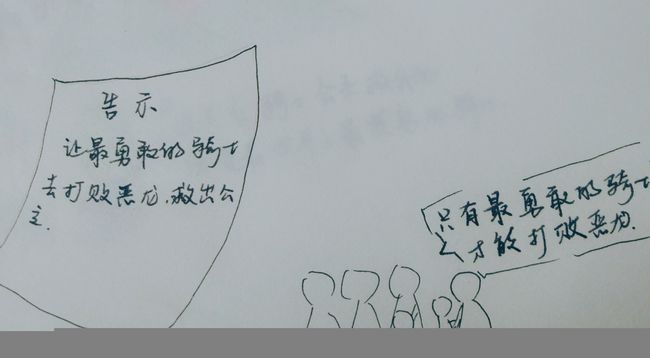 告示
让最勇敢的骑士
去打败恶龙,救出公
主.
只有最勇敢的骑士
才能打败恶龙.